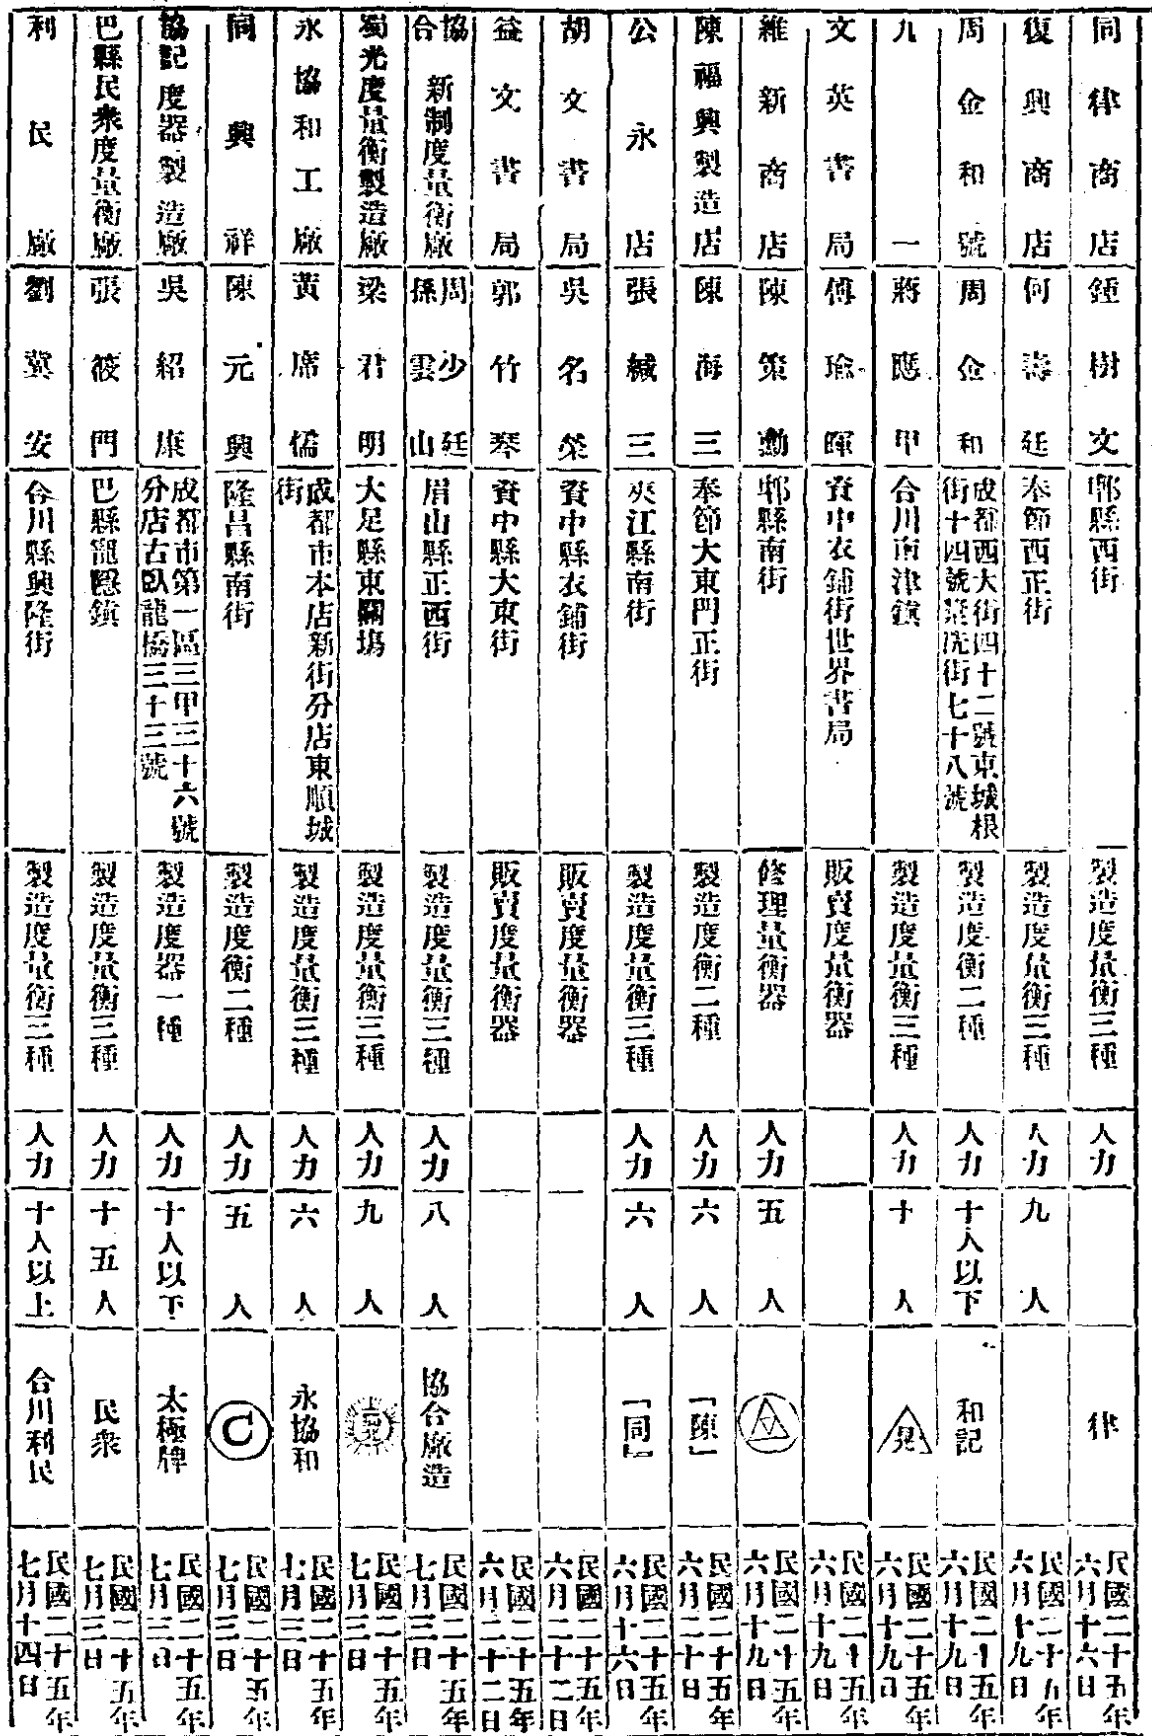 同律商店 鍾樹文 郫縣西街 製造度量衡三種 人力 律 民國二十五年六月十六日
復興商店 何壽廷 奉節西正街 製造度量衡三種 人力 九人 民國二十五年六月十九日
周金和號 周金和 成都西大街四十二號東城根街十四號漿洗街七十八號 製造度衡二種 人力 十人以下 和記 民國二十五年六月十九日
九一 蔣應甲 合川南津鎮 製造度量衡三種 人力 十人 民國二十五年六月十九日
文英書局 傅瑜暉 資中衣鋪街世界書局 販賣度量衡器 民國二十五年六月十九日
維新商店 陳策勳 郫縣南街 修理量衡器 人力 五人 民國二十五年六月十九日
陳福興製造店 陳海三 奉節大東門正街 製造度衡二種 人力 六人 「陳」 民國二十五年六月二十日
公永店 張緘三 夾江縣南街 製造度量衡三種 人力 六人 「同」 民國二十五年六月十六日
胡文書局 吳名榮 資中縣衣鋪街 販賣度量衡器 民國二十五年六月二十二日
益文書局 郭竹琴 資中縣大東街 販賣度量衡器 民國二十五年六月二十二日
協合新制度量衡廠 周少廷 孫雲山 眉山縣正西街 製造度量衡三種 人力 八人 協合廠造 民國二十五年七月三日
蜀光度量衡製造廠 梁君明 大足縣東關塲 製造度量衡三種 人力 九人 民國二十五年七月三日
永協和工廠 黃席儒 成都市本店新街分店東順城街 製造度量衡三種 人力 六人 永協和 民國二十五年七月三日
同興祥 陳元興 隆昌縣南街 製造度衡二種 人力 五人 C 民國二十五年七月三日
協記度器製造廠 吳紹康 成都市第一區三甲三十六號分店古臥龍橋三十三號 製造度器一種 人力 十人以下 太極牌 民國二十五年七月三日
巴縣民衆度量衡廠 張筱門 巴縣龍隱鎮 製造度量衡三種 人力 十五人 民衆 民國二十五年七月三日
利民廠 劉冀安 合川縣興隆街 製造度量衡三種 人力 十人以上 合川利民 民國二十五年七月十四日